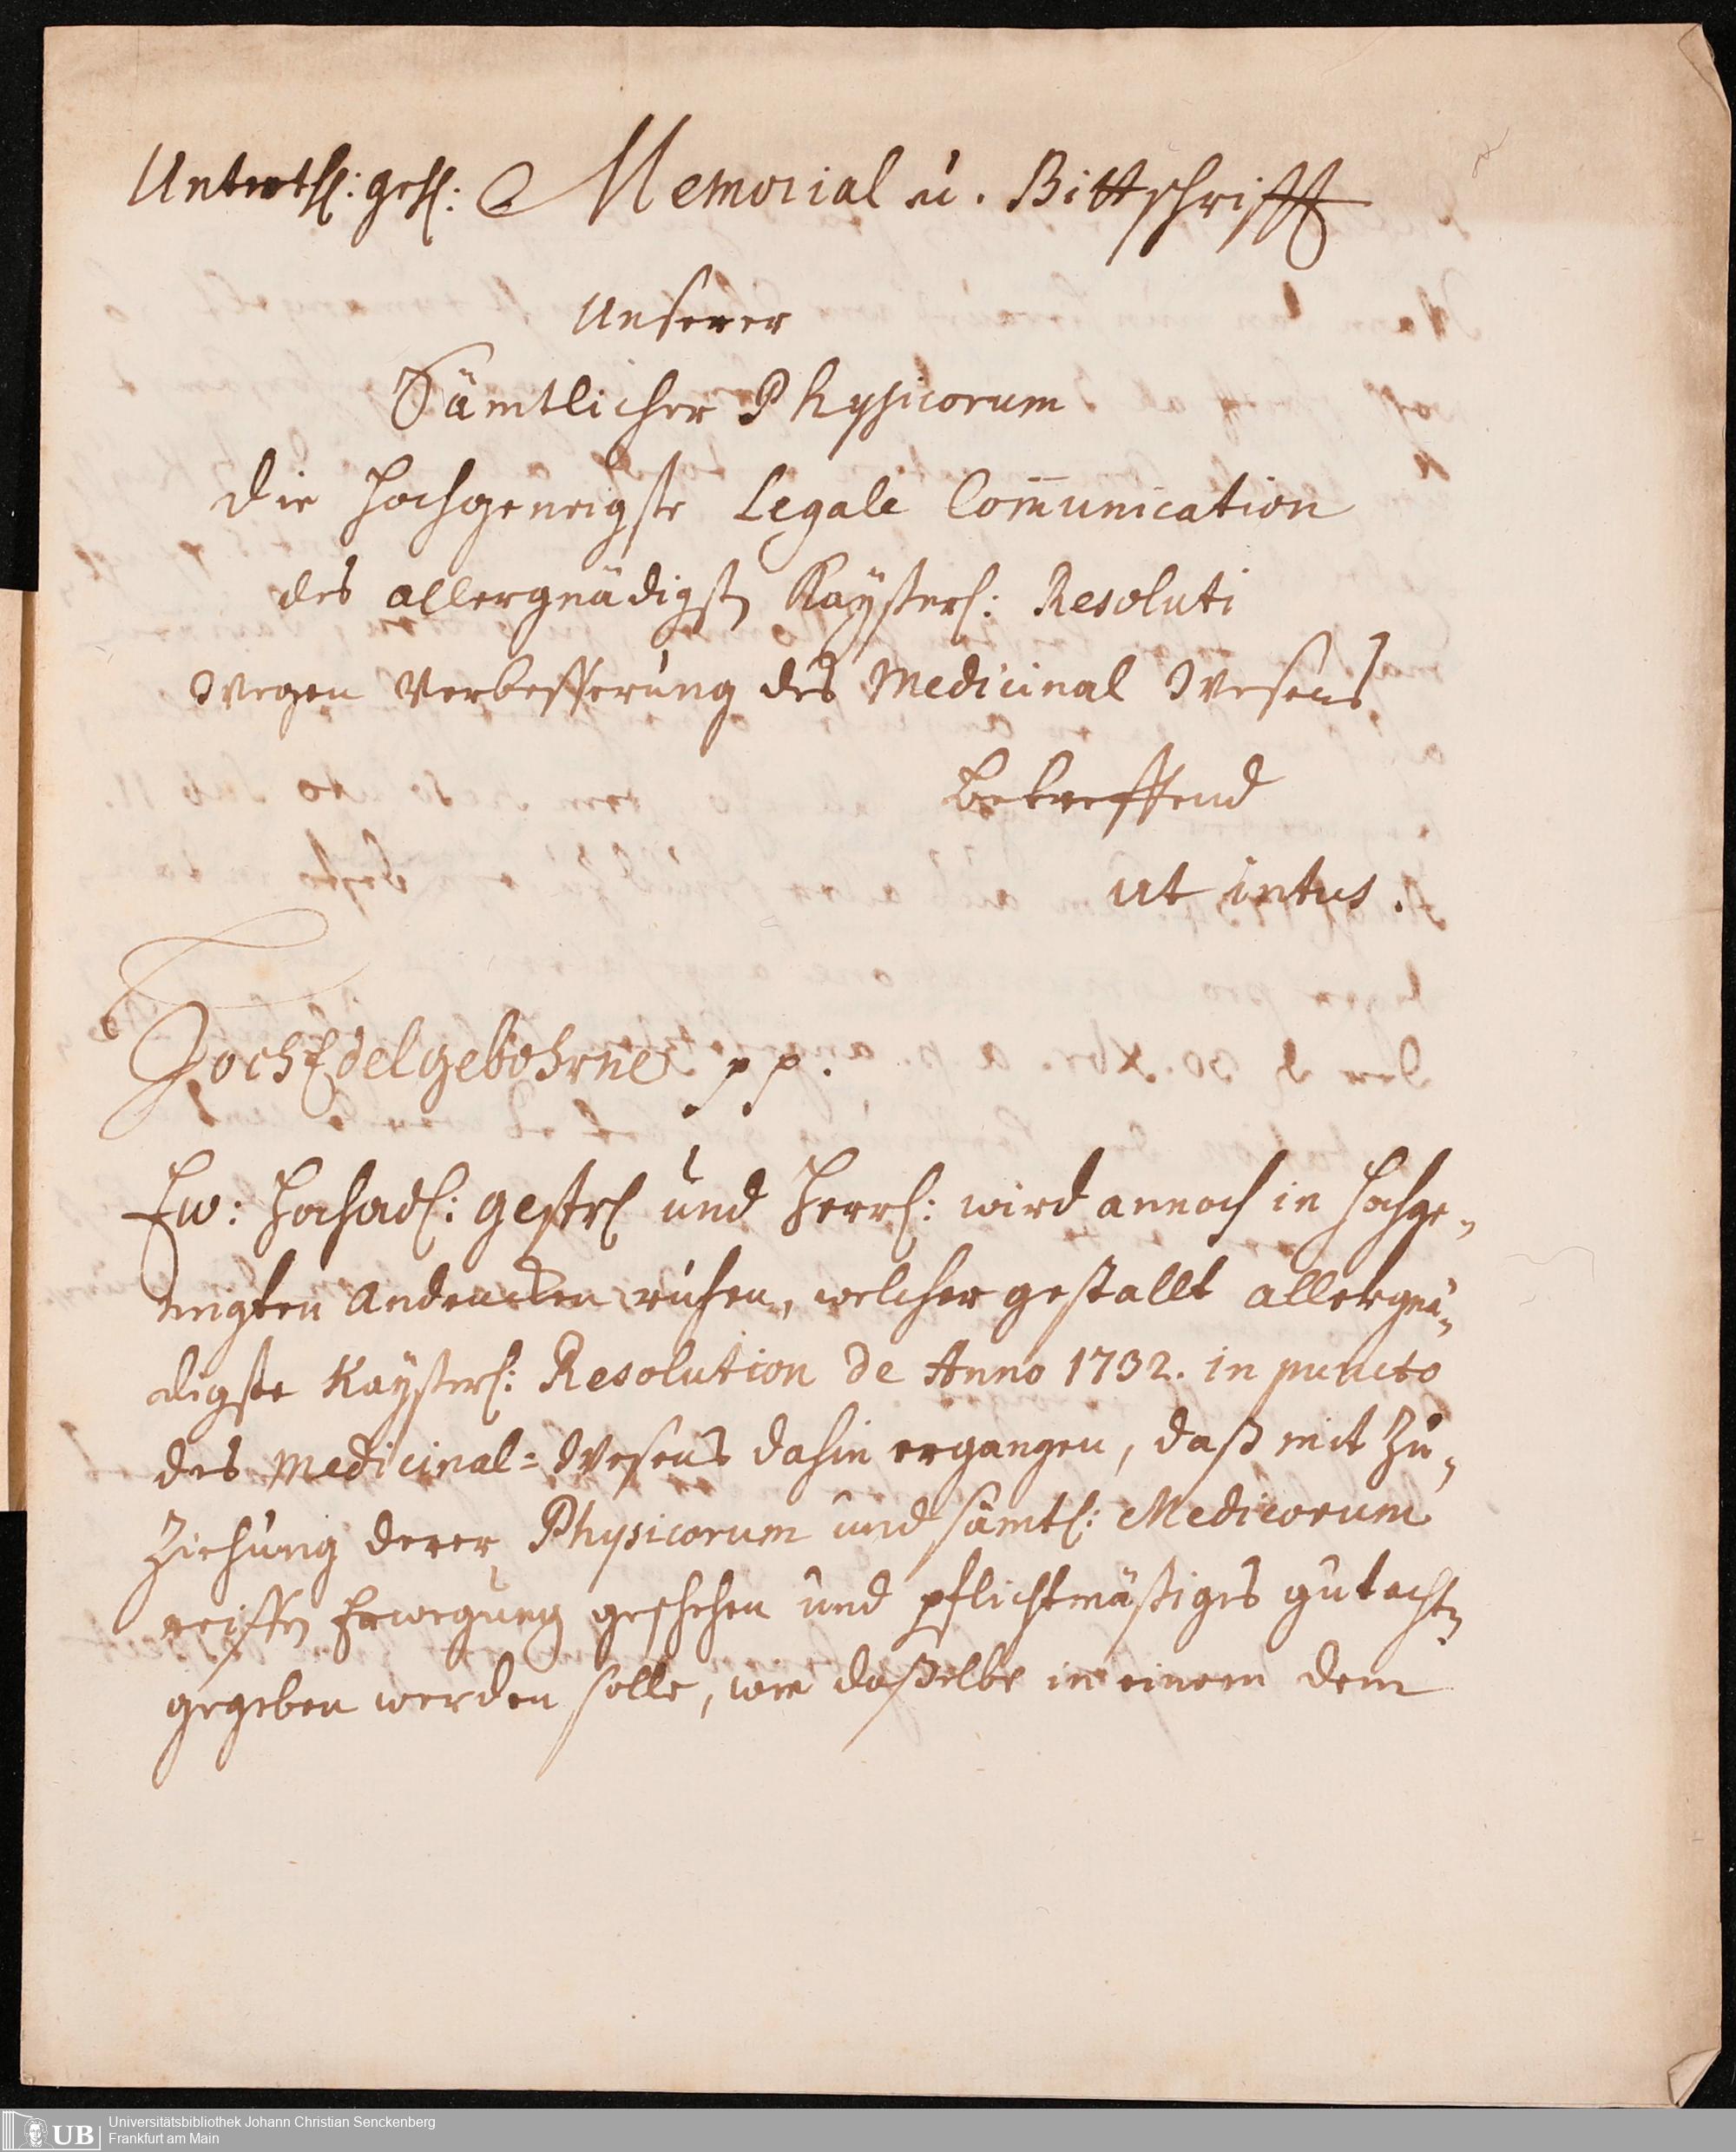 Untertħl: gehl: Memorial u. Bittschrifft
Unserer
Sämtlicher Physicorum
die hochgeneigste Legale Com̄unication
des allergnädigsten Kaÿserl: Resoluti
Wegen Verbesserung des Medicinal Wesens
Betreffend
ut intus.
HochEdelgebohrne pp.
Ew: Hochadl: gestrl und Herrl: wird annoch in hochge-
neigten Andencken ruhen, welcher gestallt allergnä-
digste Kaÿserl: Resolution de Anno 1732. in puncto
des Medicinal-Wesens dahin ergangen, daß mit Zu-
Ziehung derer Physicorum und sämtl: Medicorum
reiffe Erwegung geschehen und pflichtmäßiges gutachten
gegeben werden solle, wie daßelbe in einem dem
UB Universitätsbibliothek Johann Christian Senckenberg
Frankfurt am Main